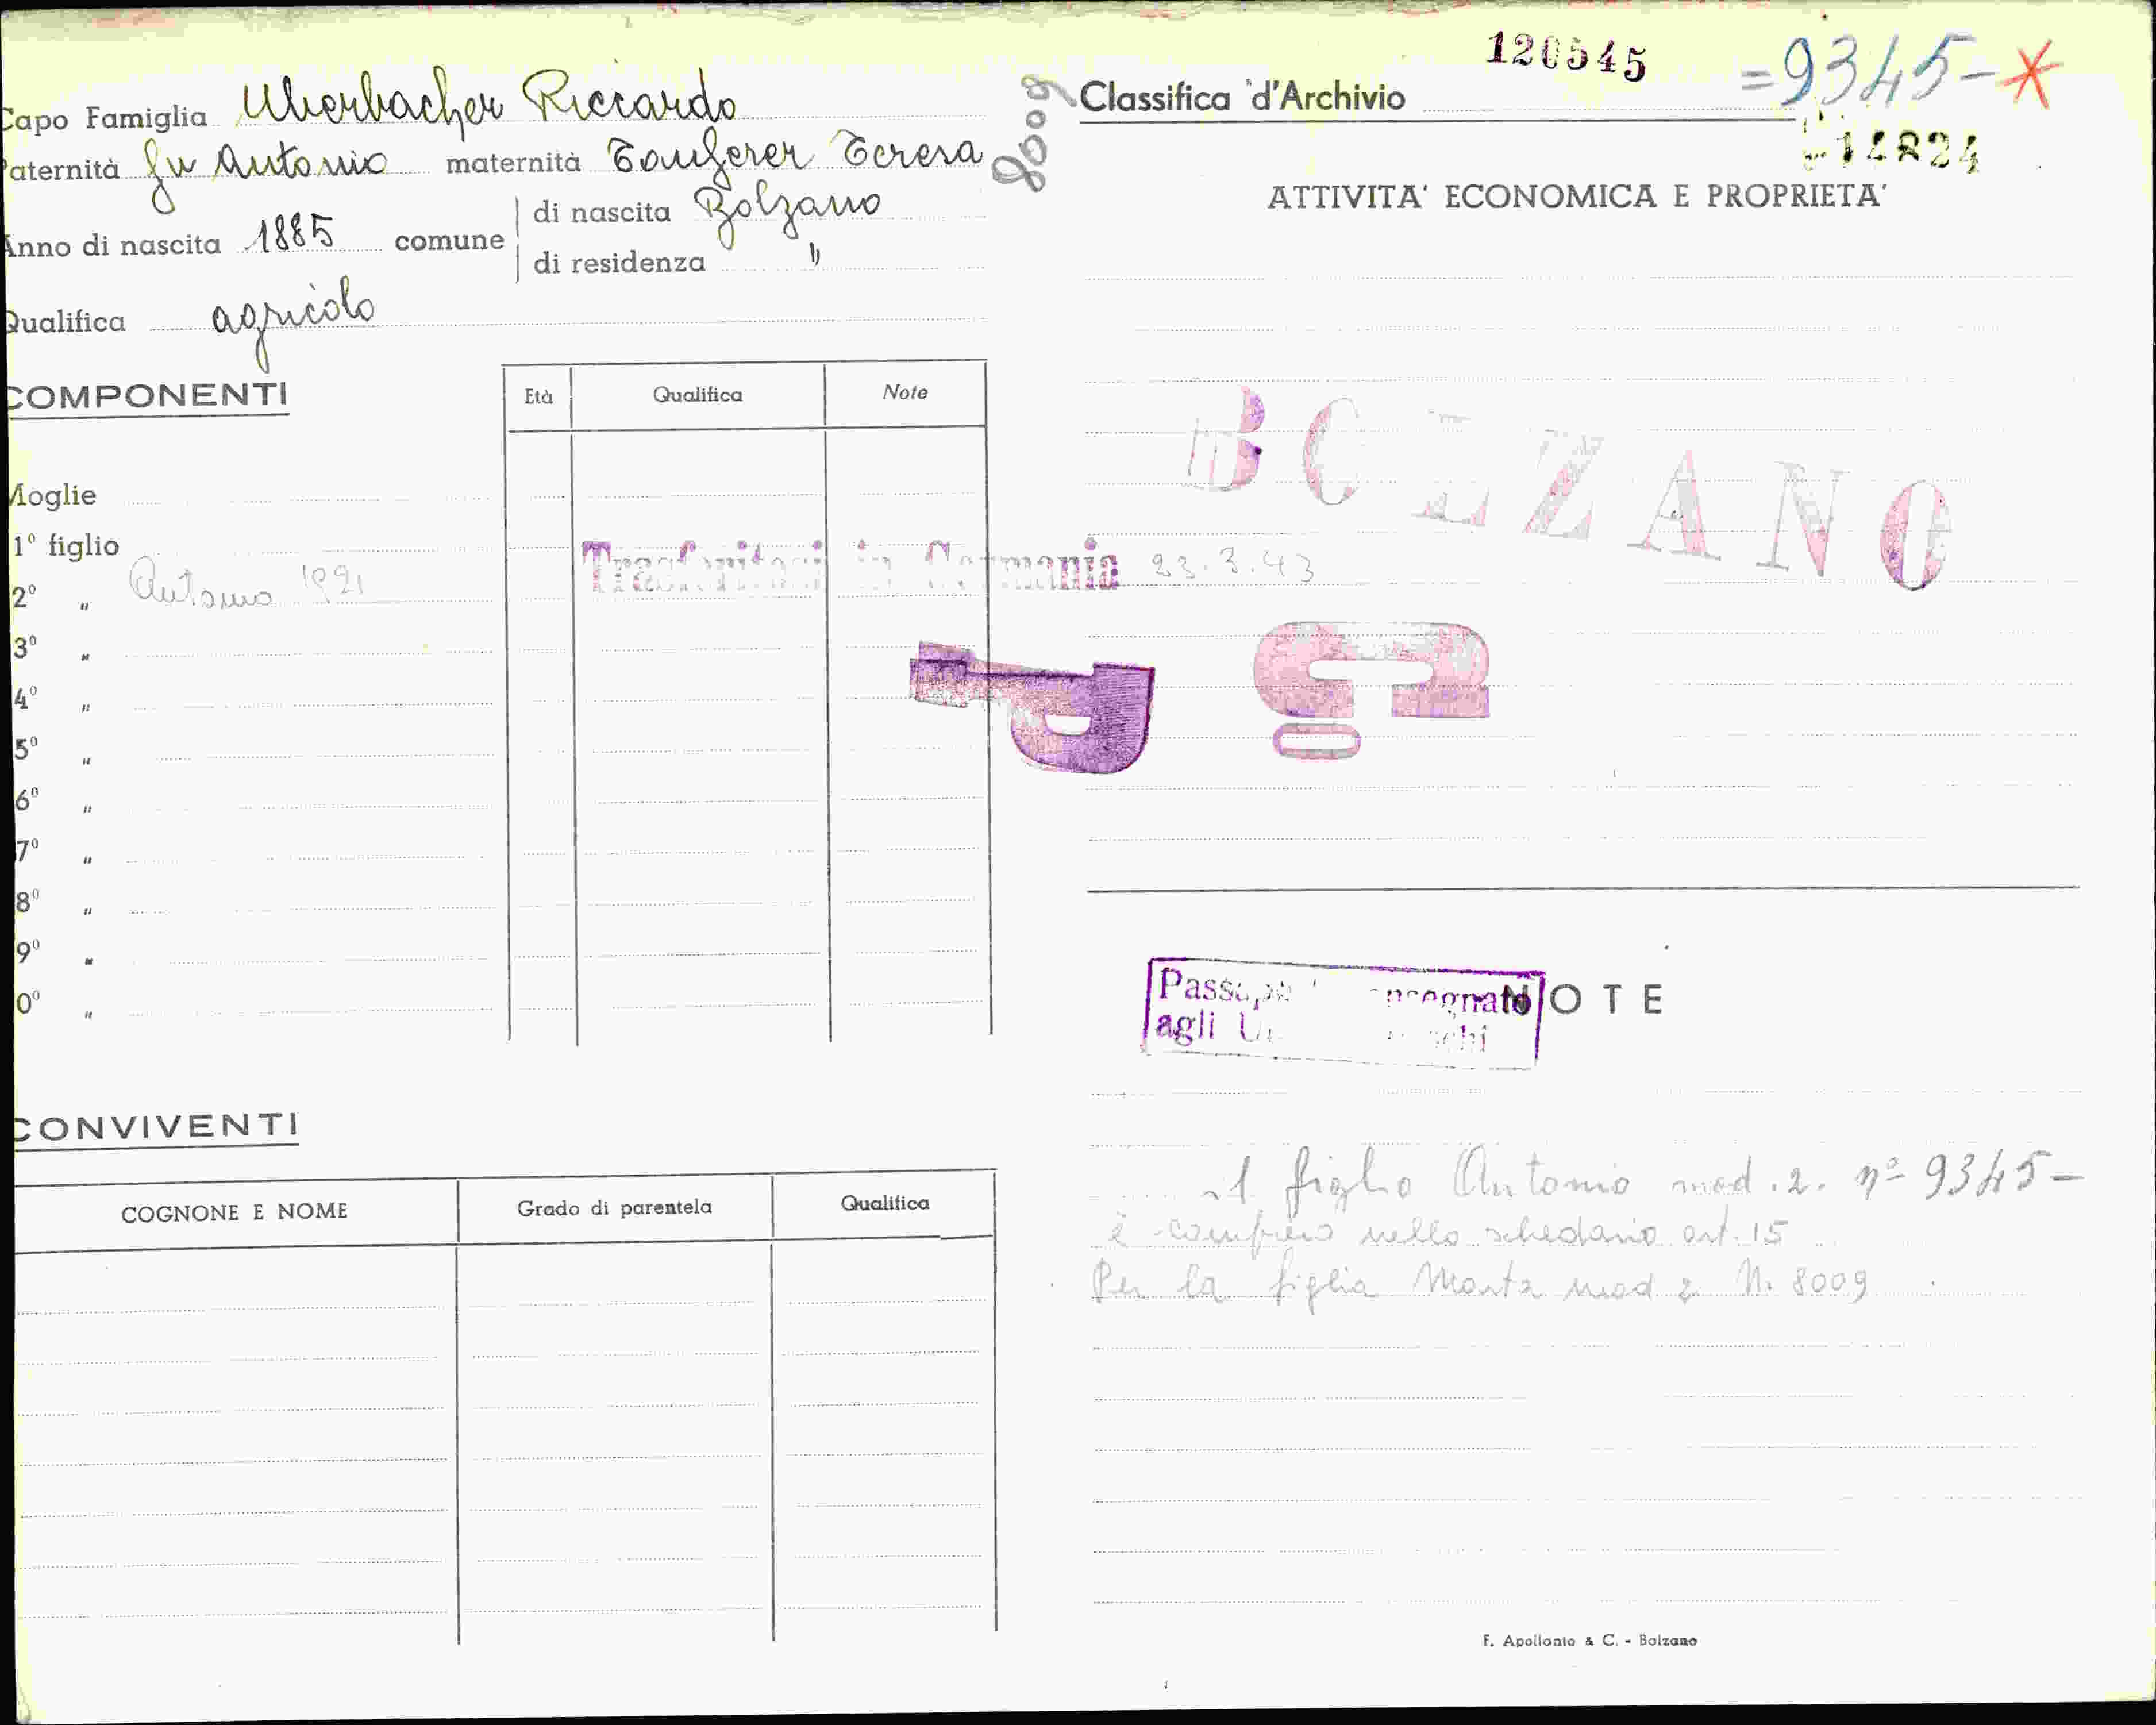 Capo Famiglia Uberbacher Riccardo
Paternità fu Antonio maternità Tomferer Teresa
Anno di nascita 1885 comune di nascita Bolzano
di residenza "
Qualifica agricolo
COMPONENTI
Età Qualifica Note
Moglie
1° figlio
2° " Antonio 1921
3° "
4° "
5° "
6° "
7° "
8° "
9° "
0° "
Trasferitosi in Germania 23.3.43
CONVIVENTI
COGNONE E NOME Grado di parentela Qualifica
8009
120545
=9345-*
Classifica d'Archivio
14824
ATTIVITA' ECONOMICA E PROPRIETA'
BOLZANO
P
NOTE
agli
il figlio Antonio mod. 2. n° 9345-
è compreso nello schedario art. 15
Per la figlia mod 2 N. 8009
F. Apollonio & C. - Bolzano